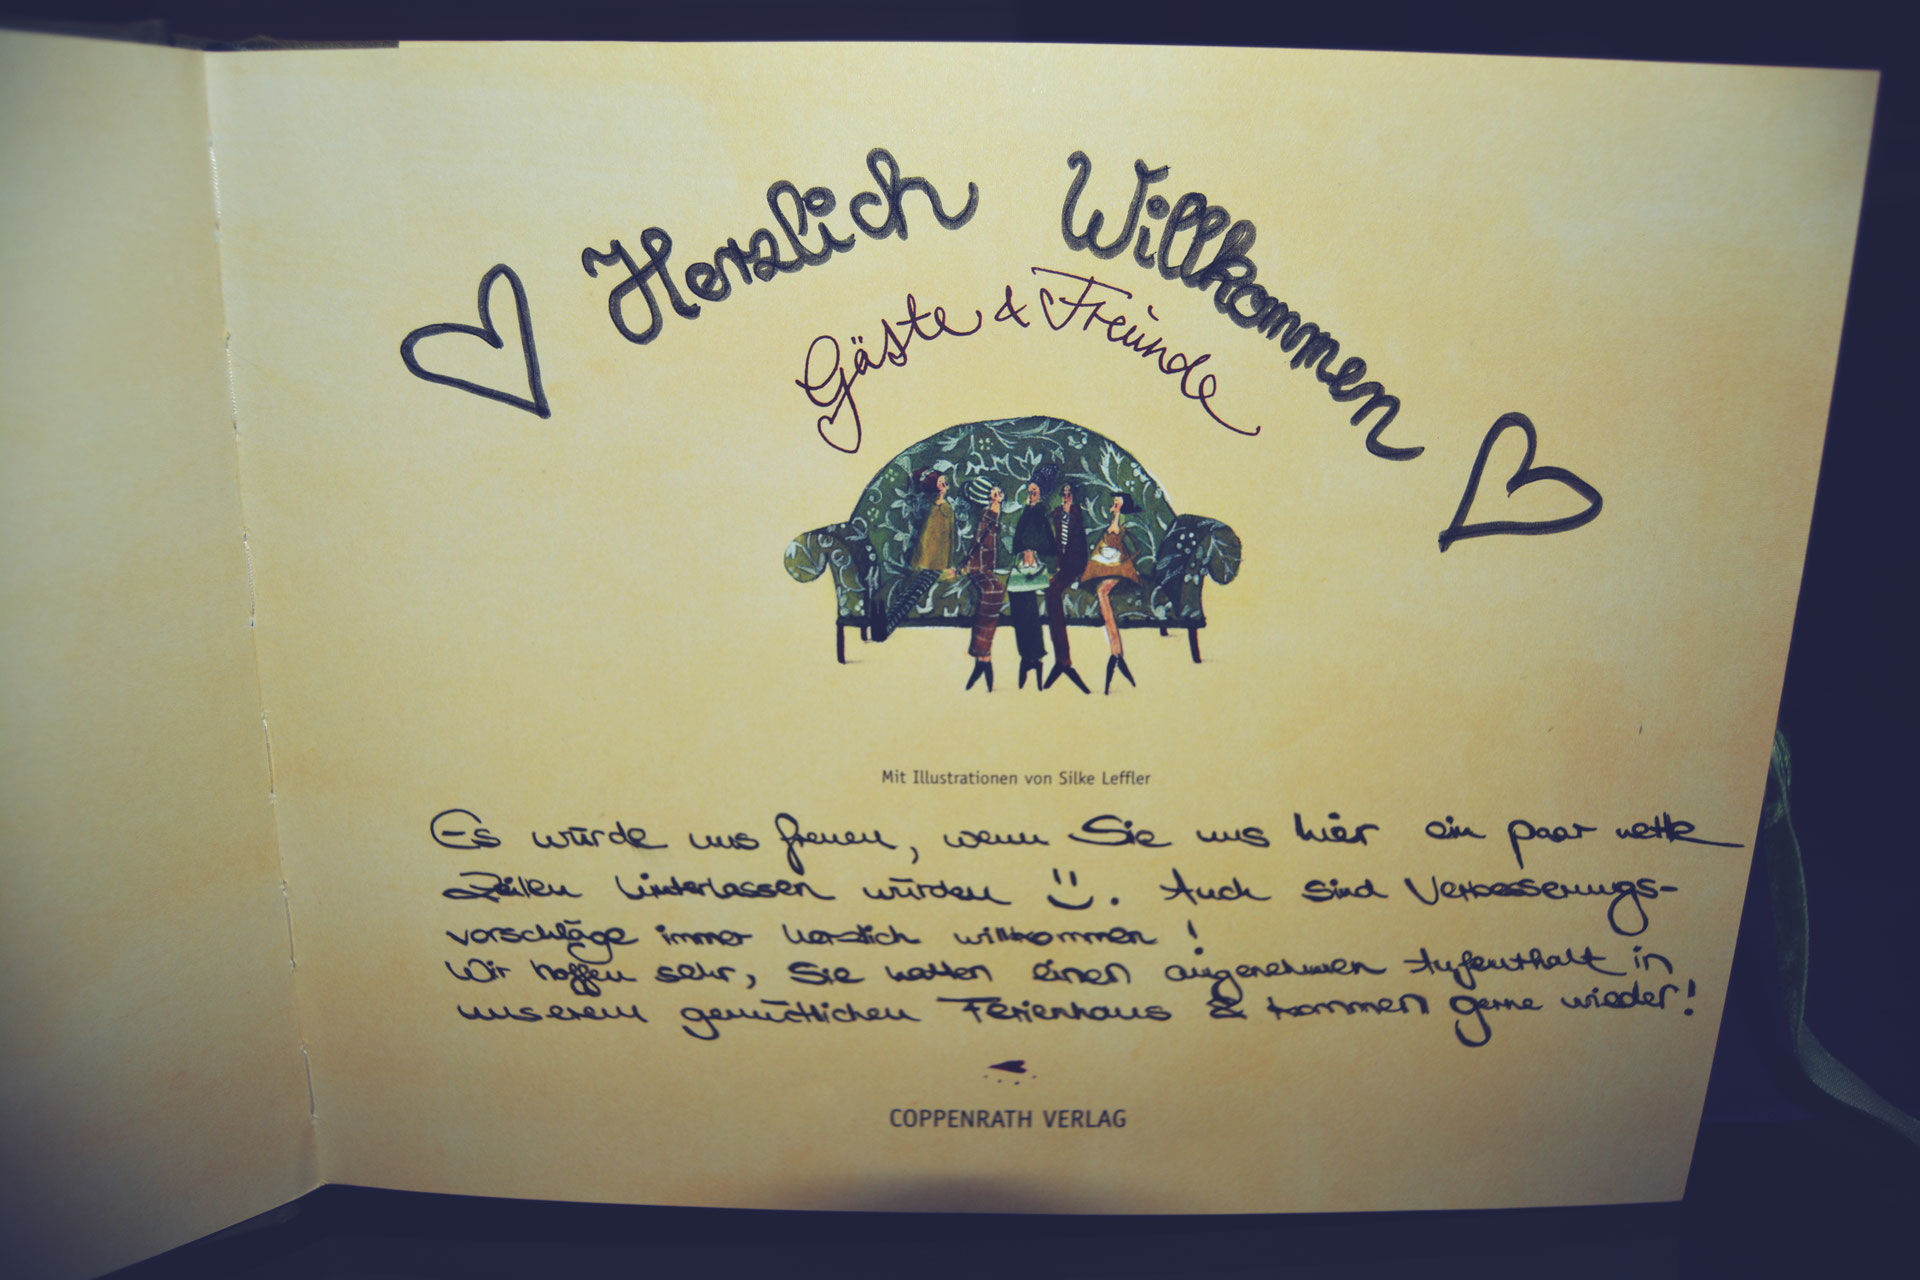 Herzlich Willkommen
Gäste & Freunde
Mit Illustrationen von Silke Leffler
Es würde uns freuen, wenn Sie uns hier ein paar nette
Zeilen hinterlassen würden. Auch sind Verbesserungs-
vorschläge immer herzlich willkommen!
Wir hoffen sehr, Sie hatten einen angenehmen Aufenthalt in
unserem gemütlichen Ferienhaus & kommen gerne wieder!
COPPENRATH VERLAG